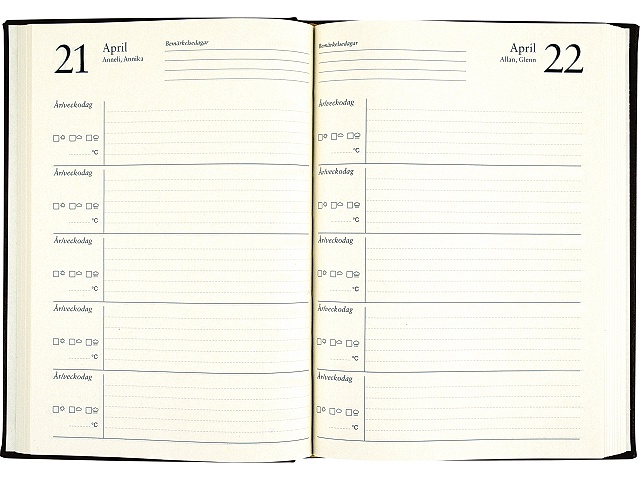 21 April
Anneli, Annika
Bemärkelsedagar
År/veckodag
°C
År/veckodag
°C
År/veckodag
°C
År/veckodag
°C
År/veckodag
°C
Bemärkelsedagar
April 22
Allan, Glenn
År/veckodag
°C
År/veckodag
°C
År/veckodag
°C
År/veckodag
°C
År/veckodag
°C